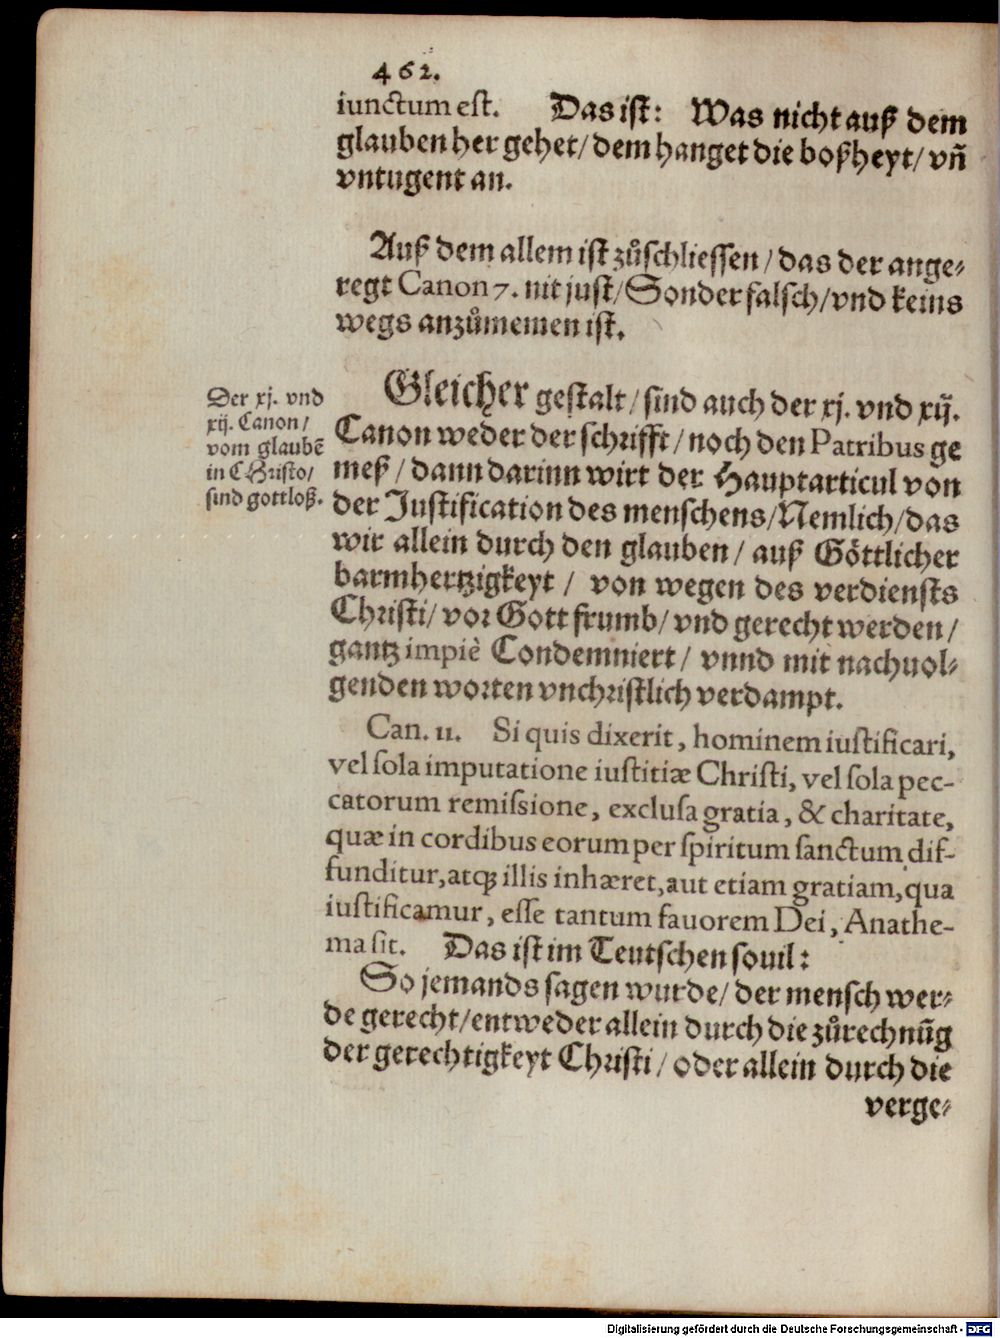 462.
iunctum est. Das ist: Was nicht auß dem
glauben her gehet/ dem hanget die boßheyt/ vñ
vntugent an.
Auß dem allem ist zůschliessen/ das der ange⸗
regt Canon 7. nit just/ Sonder falsch/ vnd keins
wegs anzůnemen ist.
Der xj. vnd
xij. Canon/
vom glaubẽ
in CHristo/
sind gottloß.
Gleicher gestalt/ sind auch der xj. vnd xij.
Canon weder der schrifft/ noch den Patribus ge
meß/ dann darinn wirt der Hauptarticul von
der Justification des menschens/ Nemlich/ das
wir allein durch den glauben/ auß Göttlicher
barmhertzigkeyt/ von wegen des verdiensts
Christi/ vor Gott frumb/ vnd gerecht werden/
gantz impiè Condemniert/ vnnd mit nachuol⸗
genden worten vnchristlich verdampt.
Can. 11. Si quis dixerit, hominem iustificari,
vel sola imputatione iustitiæ Christi, vel sola pec-
catorum remissione, exclusa gratia, & charitate,
quæ in cordibus eorum per spiritum sanctum dif-
funditur, atq; illis inhæret, aut etiam gratiam, qua
iustificamur, esse tantum fauorem Dei, Anathe-
ma sit. Das ist im Teutschen souil:
So jemands sagen wurde/ der mensch wer⸗
de gerecht/ entweder allein durch die zůrechnũg
der gerechtigkeyt Christi/ oder allein durch die
verge⸗
Digitalisierung gefördert durch die Deutsche Forschungsgemeinschaft - DFG